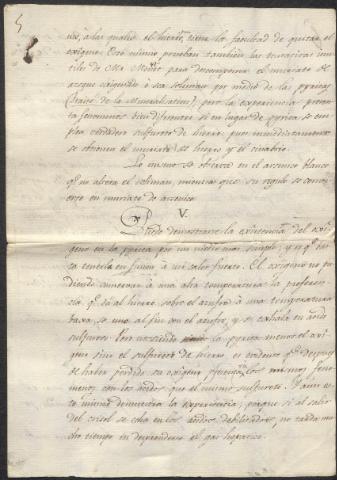 5
à las quales el hierro tiene la facultad de quitar el
oxigeno. Esto mismo prueban tambien las tentativas inu-
tiles de Mr. para descomponer el muriato de
azogue oxigenado ó sea soliman por medio de las pyritas
pero la experiencia presen-
ta fenomenos bien diferentes si en lugar de pyrita se em-
plea verdadero sulfureto de hierro, pues inmediatamente
se obtienen el muriate de hierro y el cinabrio.
Lo mismo se observa en el arsenico blanco
qe. no altera el soliman, mientras que su regulo se convi-
erte en muriate de arsenico.
V.
Puede demostrarse la existencia del oxi-
geno en la pyrita por un medio mas simple, y es qe.
tenerla en fusion á un calor fuerte. El oxigeno no pu-
diendo conservar á una alta temperatura la preferen-
cia qe. dá al hierro sobre el azufre á una temperatura
baxa, se une al fin con el azufre, y se exhala en acido
sulfuroso. Pero no siendo la pyrita menos el oxi-
geno sino el sulfureto de hierro, es evidente qe. despues
de haber perdido su oxigeno los mismos feno-
menos con los acidos que el mismo sulfureto. Y aun es-
to mismo demuestra la experiencia; porque si al salir
del crisol se echa en los acidos debilitados, no tarda mu-
cho tiempo en desprenderse el gas hepatico.